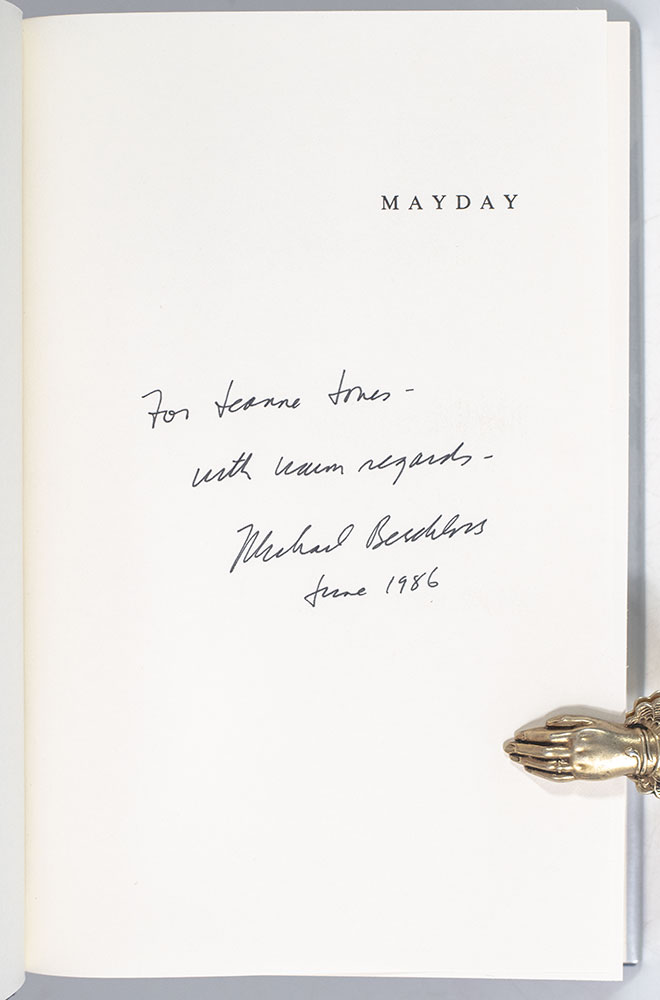 MAYDAY
For Jeanne Jones -
with warm regards -
Michael Beschloss
June 1986